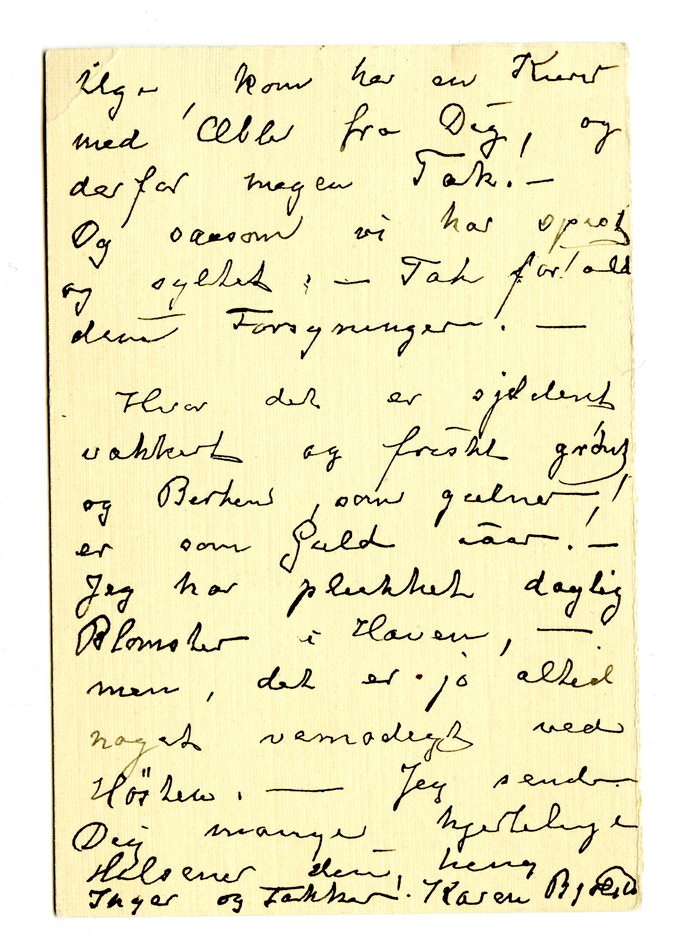 kom her en Kurv
med Æbler fra Dig, og
derfor megen Tak! —
Og saasom vi har spist
og syltet, — Tak for! alle
dine Forsyninger. —
Hvor det er sjeldent
vakkert og friskt grønt
og Berken, som gulner,!
er som Guld iaar! —
Jeg har plukket daglig
Blomster i Haven, —
men, det er jo altid
noget vemodigt ved
Høsten. — Jeg sender
Dig mange hjertelige
Hilsener
Inger og Takker! Karen